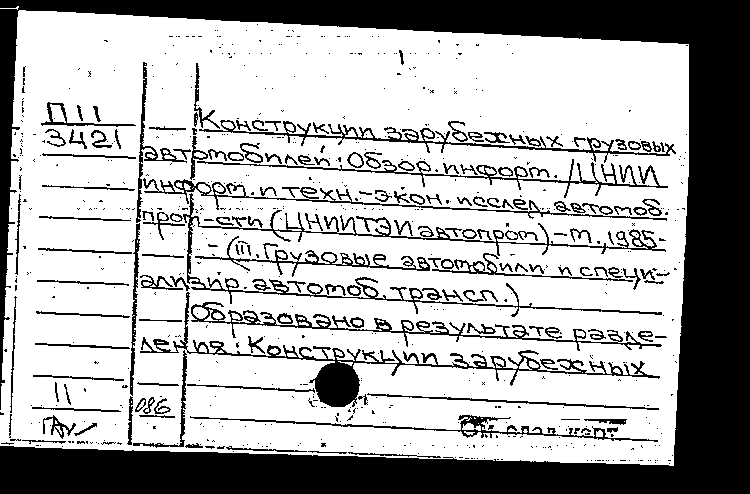 П11
3421
Конструкции зарубежных грузовых
автомобилей: Обзор. информ. /ЦНИИ
информ. и техн.-экон. исслед. автомоб.
пром-сти (ЦНИИТЭИавтопром)-М.,1985-
- (III. Грузовые автомобили и специ-
ализир. автомоб. трансп.).
Образовано в результате разде-
ления: Конструкции зарубежных
11
086
См. след. карт.